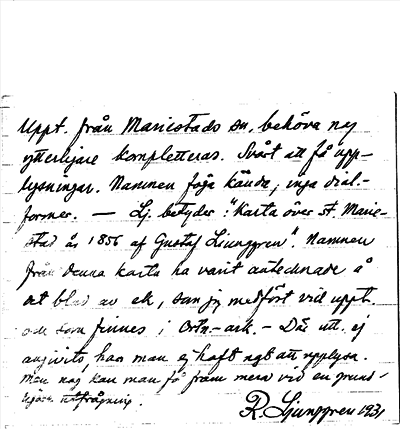 Uppt. från Mariestads sn. behöva ny
ytterligare kompletteras. Svårt att få upp-
lysningar. Namnen föga kända, inga dial.-
former. — Lj. betyder: "Karta över St. Marie-
stad år 1856 af Gustaf Ljunggren". Namnen
från denna karta ha varit antecknade å
ett blad av ek, som jag medfört vid uppt.
och som finnes i Ortn.-ark. – Där utt. ej
angivits, har man ej haft ngt att upplysa.
Men nog kan man få fram mera vid en grund-
ligare utfrågning.
R. Ljunggren 1931